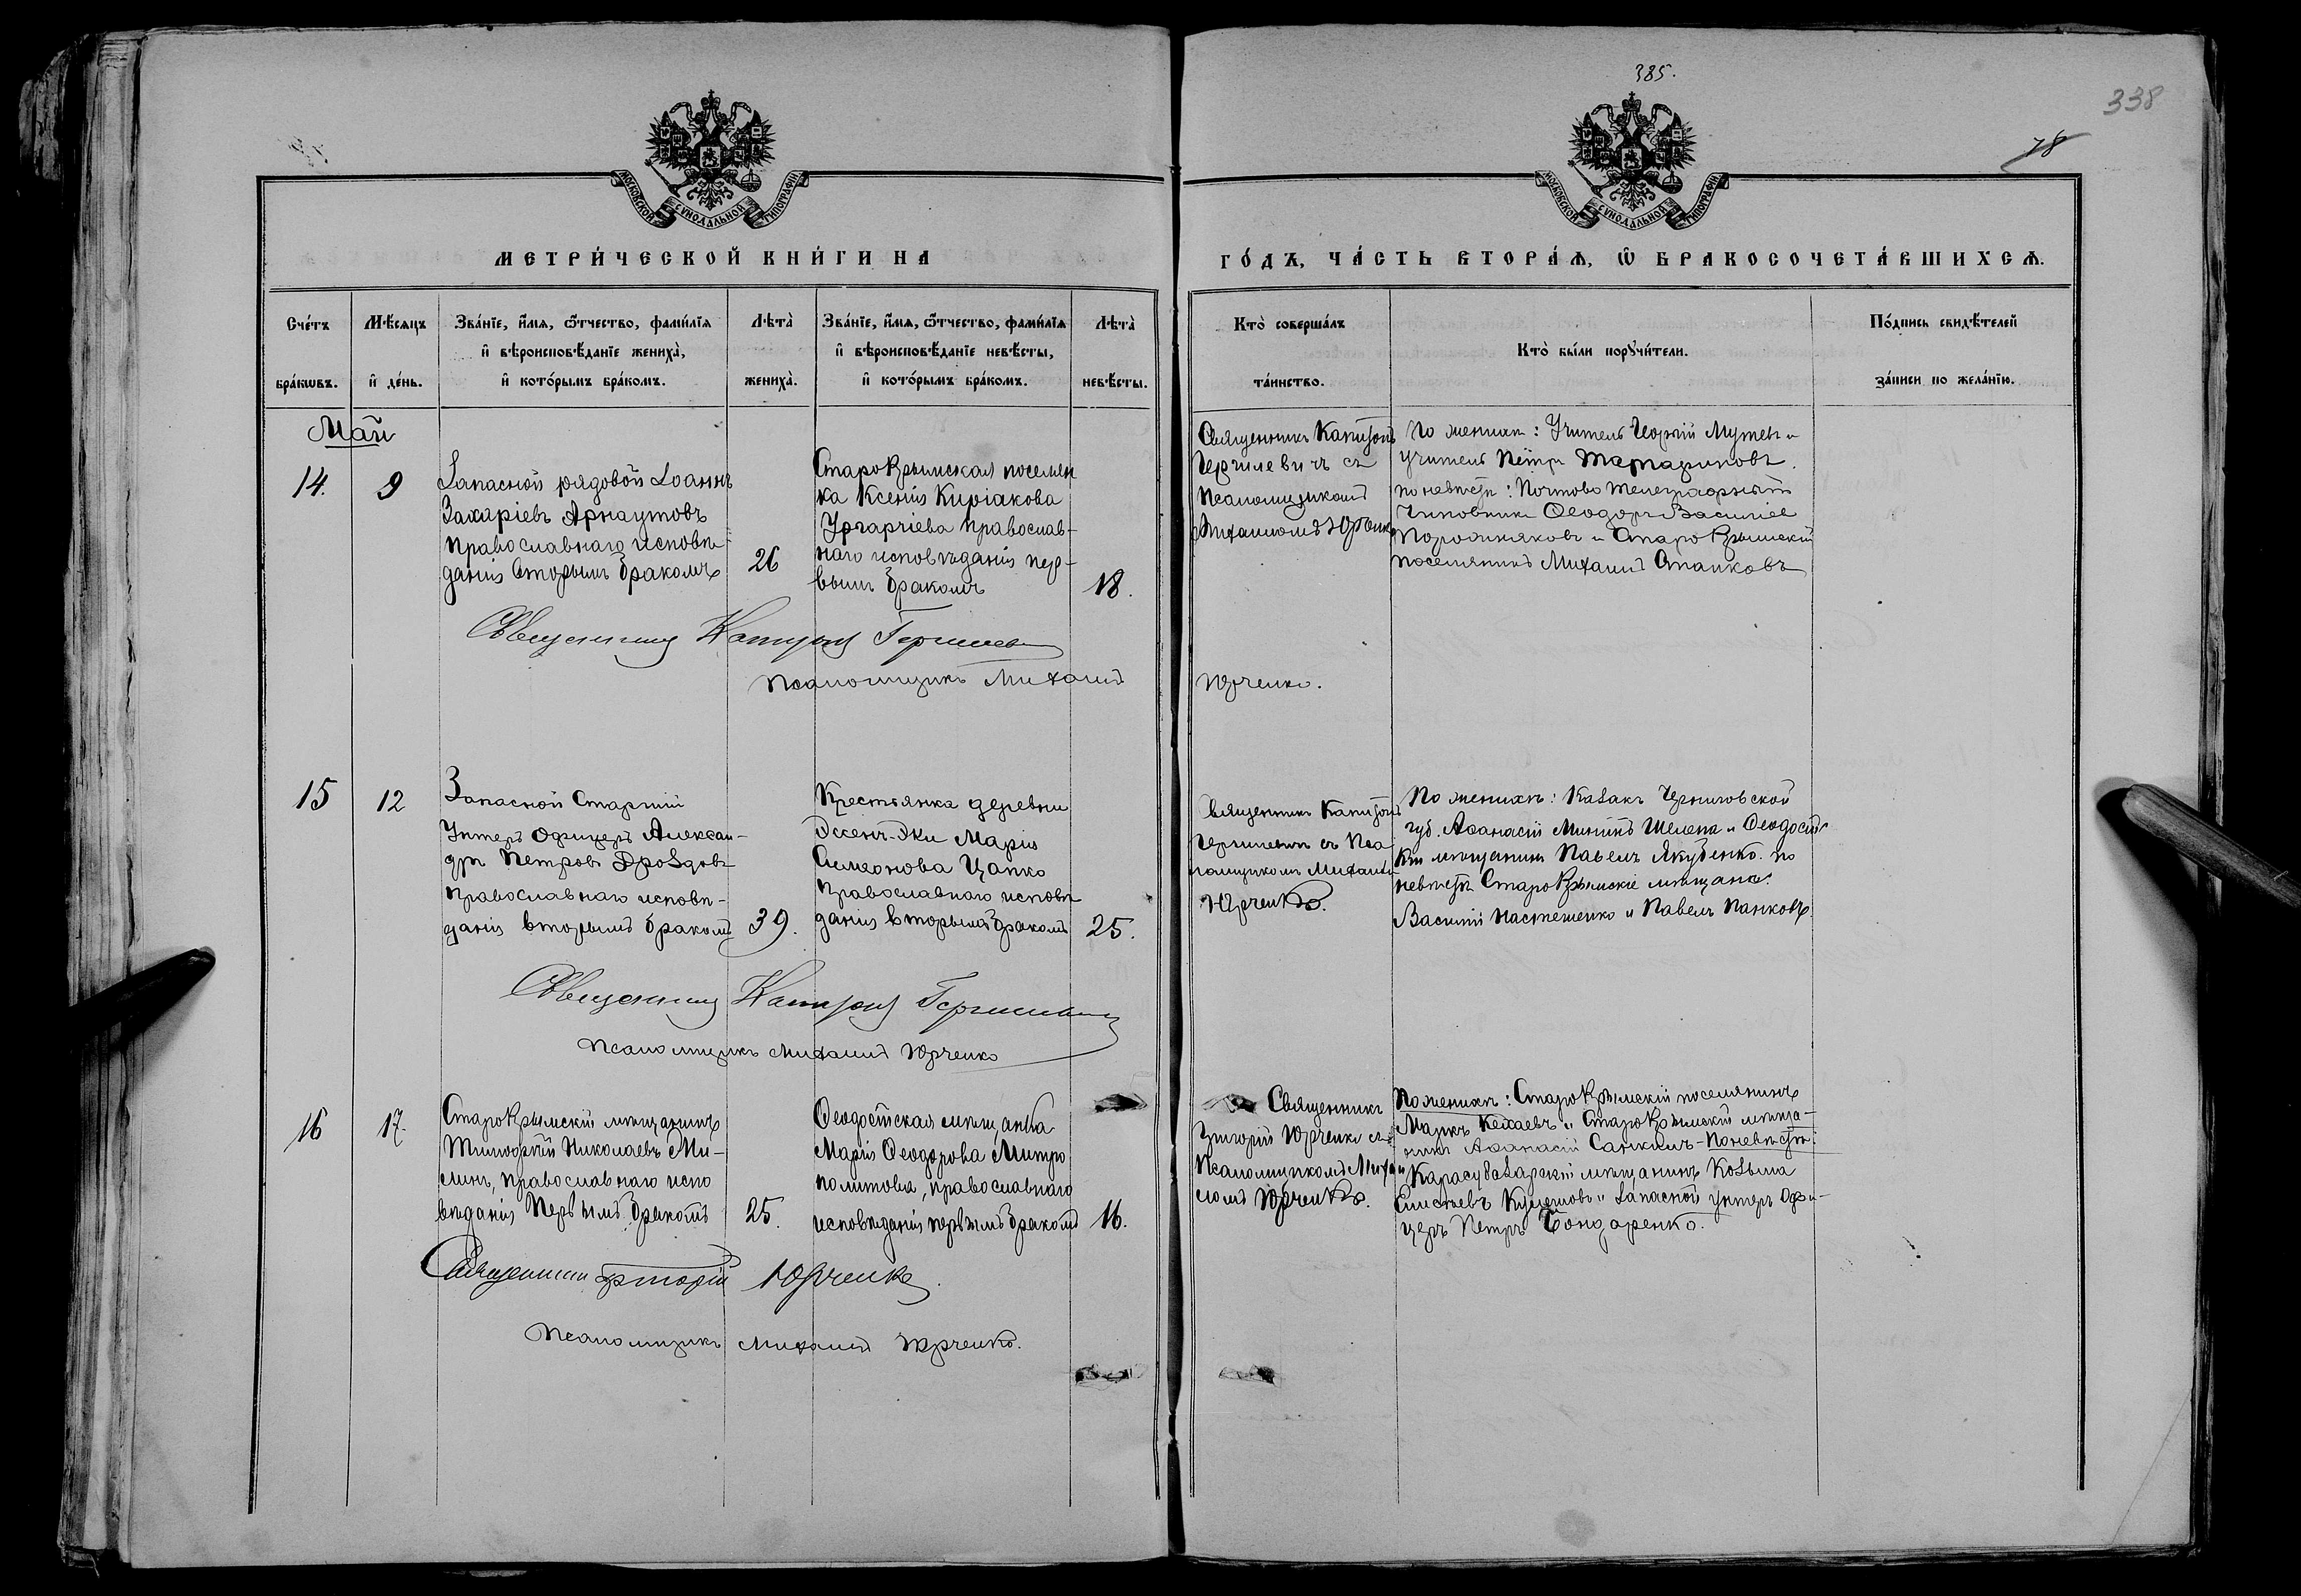 385.
338
78
МОСКОВСКОЙ СѴНОДАЛЬНОЙ ТИПОГРАФІИ
МОСКОВСКОЙ СѴНОДАЛЬНОЙ ТИПОГРАФІИ
МЕТРИ́ЧЕСКОЙ КНИ́ГИ НА
ГО́ДЪ, ЧА́СТЬ ВТОРА́Ѧ, Ѡ҆ БРАКОСОЧЕТА́ВШИХСѦ.
Сче́тъ
бра́кѡвъ.
Мѣ́сѧцъ
и҆ де́нь.
Зва́нїе, и҆́мѧ, ѻ҆́тчество, фами́лїѧ
и҆ вѣроисповѣ́данїе жениха̀,
и҆ кото́рымъ бра́комъ.
Лѣ́та̀
жениха̀.
Зва́нїе, и҆́мѧ, ѻ҆́тчество, фами́лїѧ
и҆ вѣроисповѣ́данїе невѣ́сты,
и҆ кото́рымъ бра́комъ.
Лѣ́та̀
невѣ́сты.
Кто̀ соверша́лъ
та́инство.
Кто̀ бы́ли порꙋчи́тели.
По́дпись свидѣ́телей
за́писи по жела́нїю.
Май
14.
9
Запасной рядовой Іоаннъ
Захаріевъ Арнаутовъ
православнаго исповѣ-
данія вторымъ бракомъ
26
Старокрымская поселян
ка Ксенія Киріакова
Ургарчіева православ-
наго исповѣданія пер-
вымъ бракомъ
18.
Священникъ Капитонъ
Гергилевичъ съ
Псаломщикомъ
Михаиломъ Юрченко
По женихѣ: Учитель Георгій Мутев и
учитель Петръ Татариновъ.
по невѣстѣ: Почтово телеграфный
Чиновникъ Ѳеодоръ Василіев
Порожняковъ и Старокрымскій
поселянинъ Михаилъ Стамковъ
Священникъ Капитонъ Гергилевичъ
Псаломщикъ Михаилъ
Юрченко.
15
12
Запасной Старшій
Унтеръ Офицеръ Алексан-
дръ Петровъ Дроздовъ
православнаго исповѣ-
данія вторымъ бракомъ
39.
Крестьянка деревни
Эссенъ-Эки Марія
Симеонова Цапко
православнаго исповѣ
данія вторымъ бракомъ
25.
Священникъ Капитонъ
Гергилевичъ съ Пса
ломщикомъ Михаил
Юрченко.
По женихѣ: Казакъ Черниговской
губ. Аѳанасій Мининъ Шелепа и Ѳеодосій
кій мѣщанинъ Павелъ Якубенко. по
невѣстѣ Старокрымскіе мѣщане:
Василій Настешенко и Павелъ Панковъ.
Священникъ Капитонъ Гергилевичъ
Псаломщикъ Михаилъ Юрченко
16
17.
Старокрымскій мѣщанинъ
Тимоѳей Николаевъ Ми-
линъ, православнаго испо
вѣданія первымъ бракомъ
25.
Ѳеодосійская мѣщанка
Марія Ѳеодорова Митро
политова, православнаго
исповѣданія первымъ бракомъ
16.
Священникъ
Григорій Юрченко съ
Псаломщикомъ Михаи
ломъ Юрченко.
По женихѣ: Старокрымскій поселянинъ
Маркъ Кехаевъ и Старокрымскій мѣща-
нинъ Аѳанасій Санжилъ - По невѣстѣ:
Карасубазарскій мѣщанинъ Козьма
Елисѣевъ Кулешовъ и запасной унтеръ Офи-
церъ Петръ Бондаренко.
Священникъ Григорій Юрченко.
Псаломщикъ Михаилъ Юрченко.